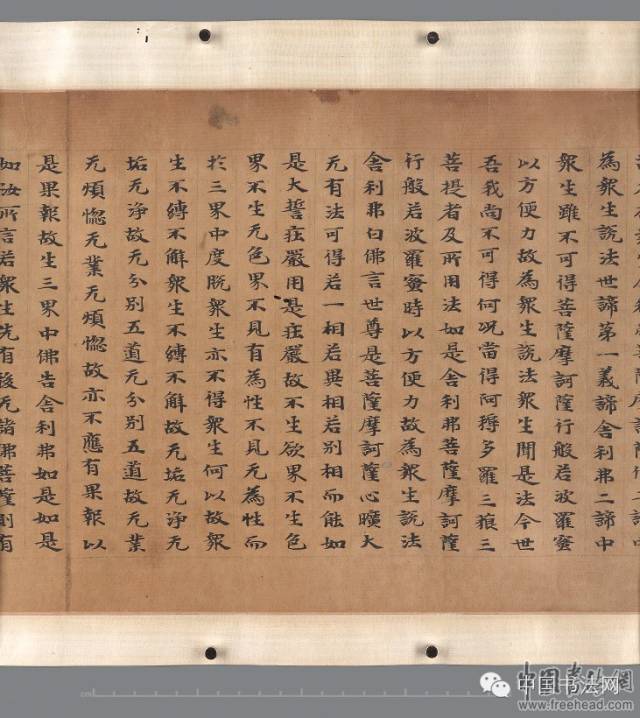 為衆生説法世諦第一義諦舍利弗二諦中
衆生雖不可得菩薩摩訶薩行般若波羅蜜
以方便力故為衆生説法衆生聞是法今世
吾我尚不可得何况當得阿耨多羅三藐三
菩提者及所用法如是舍利弗菩薩摩訶薩
行般若波羅蜜時以方便力故為衆生説法
舍利弗白佛言世尊是菩薩摩訶薩心曠大
无有法可得若一相若異相若別相而能如
是大誓莊嚴用是莊嚴故不生欲界不生色
界不生无色界不見有為性不見无為性而
於三界中度脱衆生亦不得衆生何以故衆
生不縛不解衆生不縛不解故无垢无淨无
垢无淨故无分別五道无分別五道故无業
无煩惱无業无煩惱故亦不應有果報以
是果報故生三界中佛告舍利弗如是如是
如汝所言若衆生先有後无諸佛菩薩則有
中国书法网
www.freehead.com